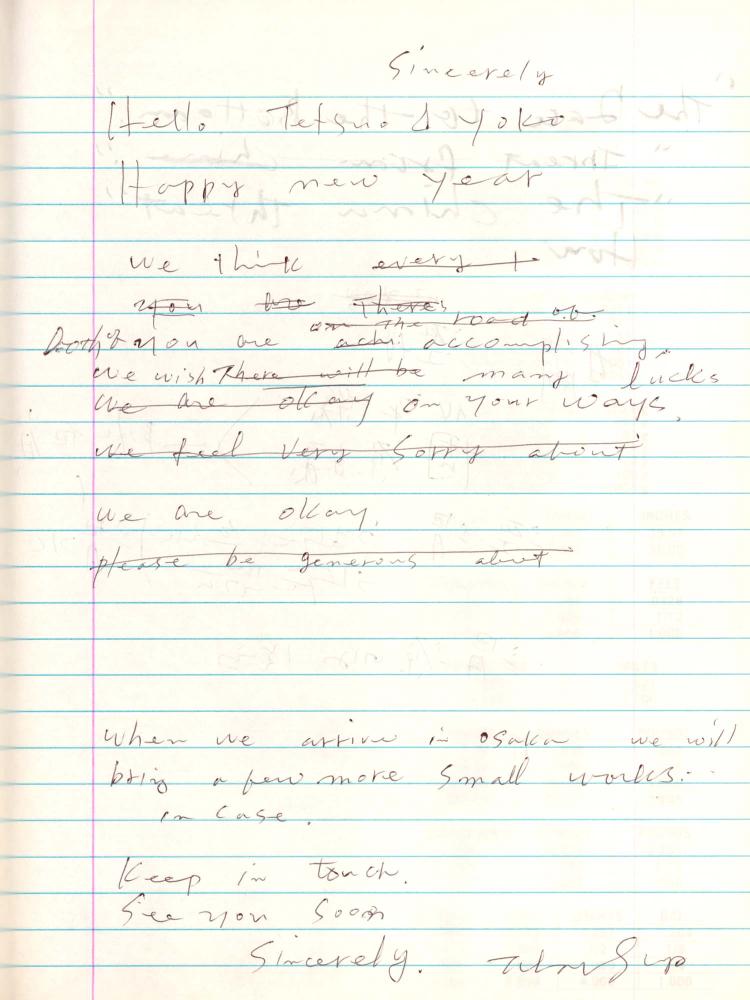 Sincerely
Hello Tetsuo & Yoko
Happy new year
we think every t
you too There's
on the road
Both of you are accomplishing
we wish There will be many lucks
we are okay on your ways.
we feel very sorry about
we are okay.
please be generous about
when we arrive in osaka we will
bring a few more small works.
in case.
Keep in touch.
See you soon
Sincerely.